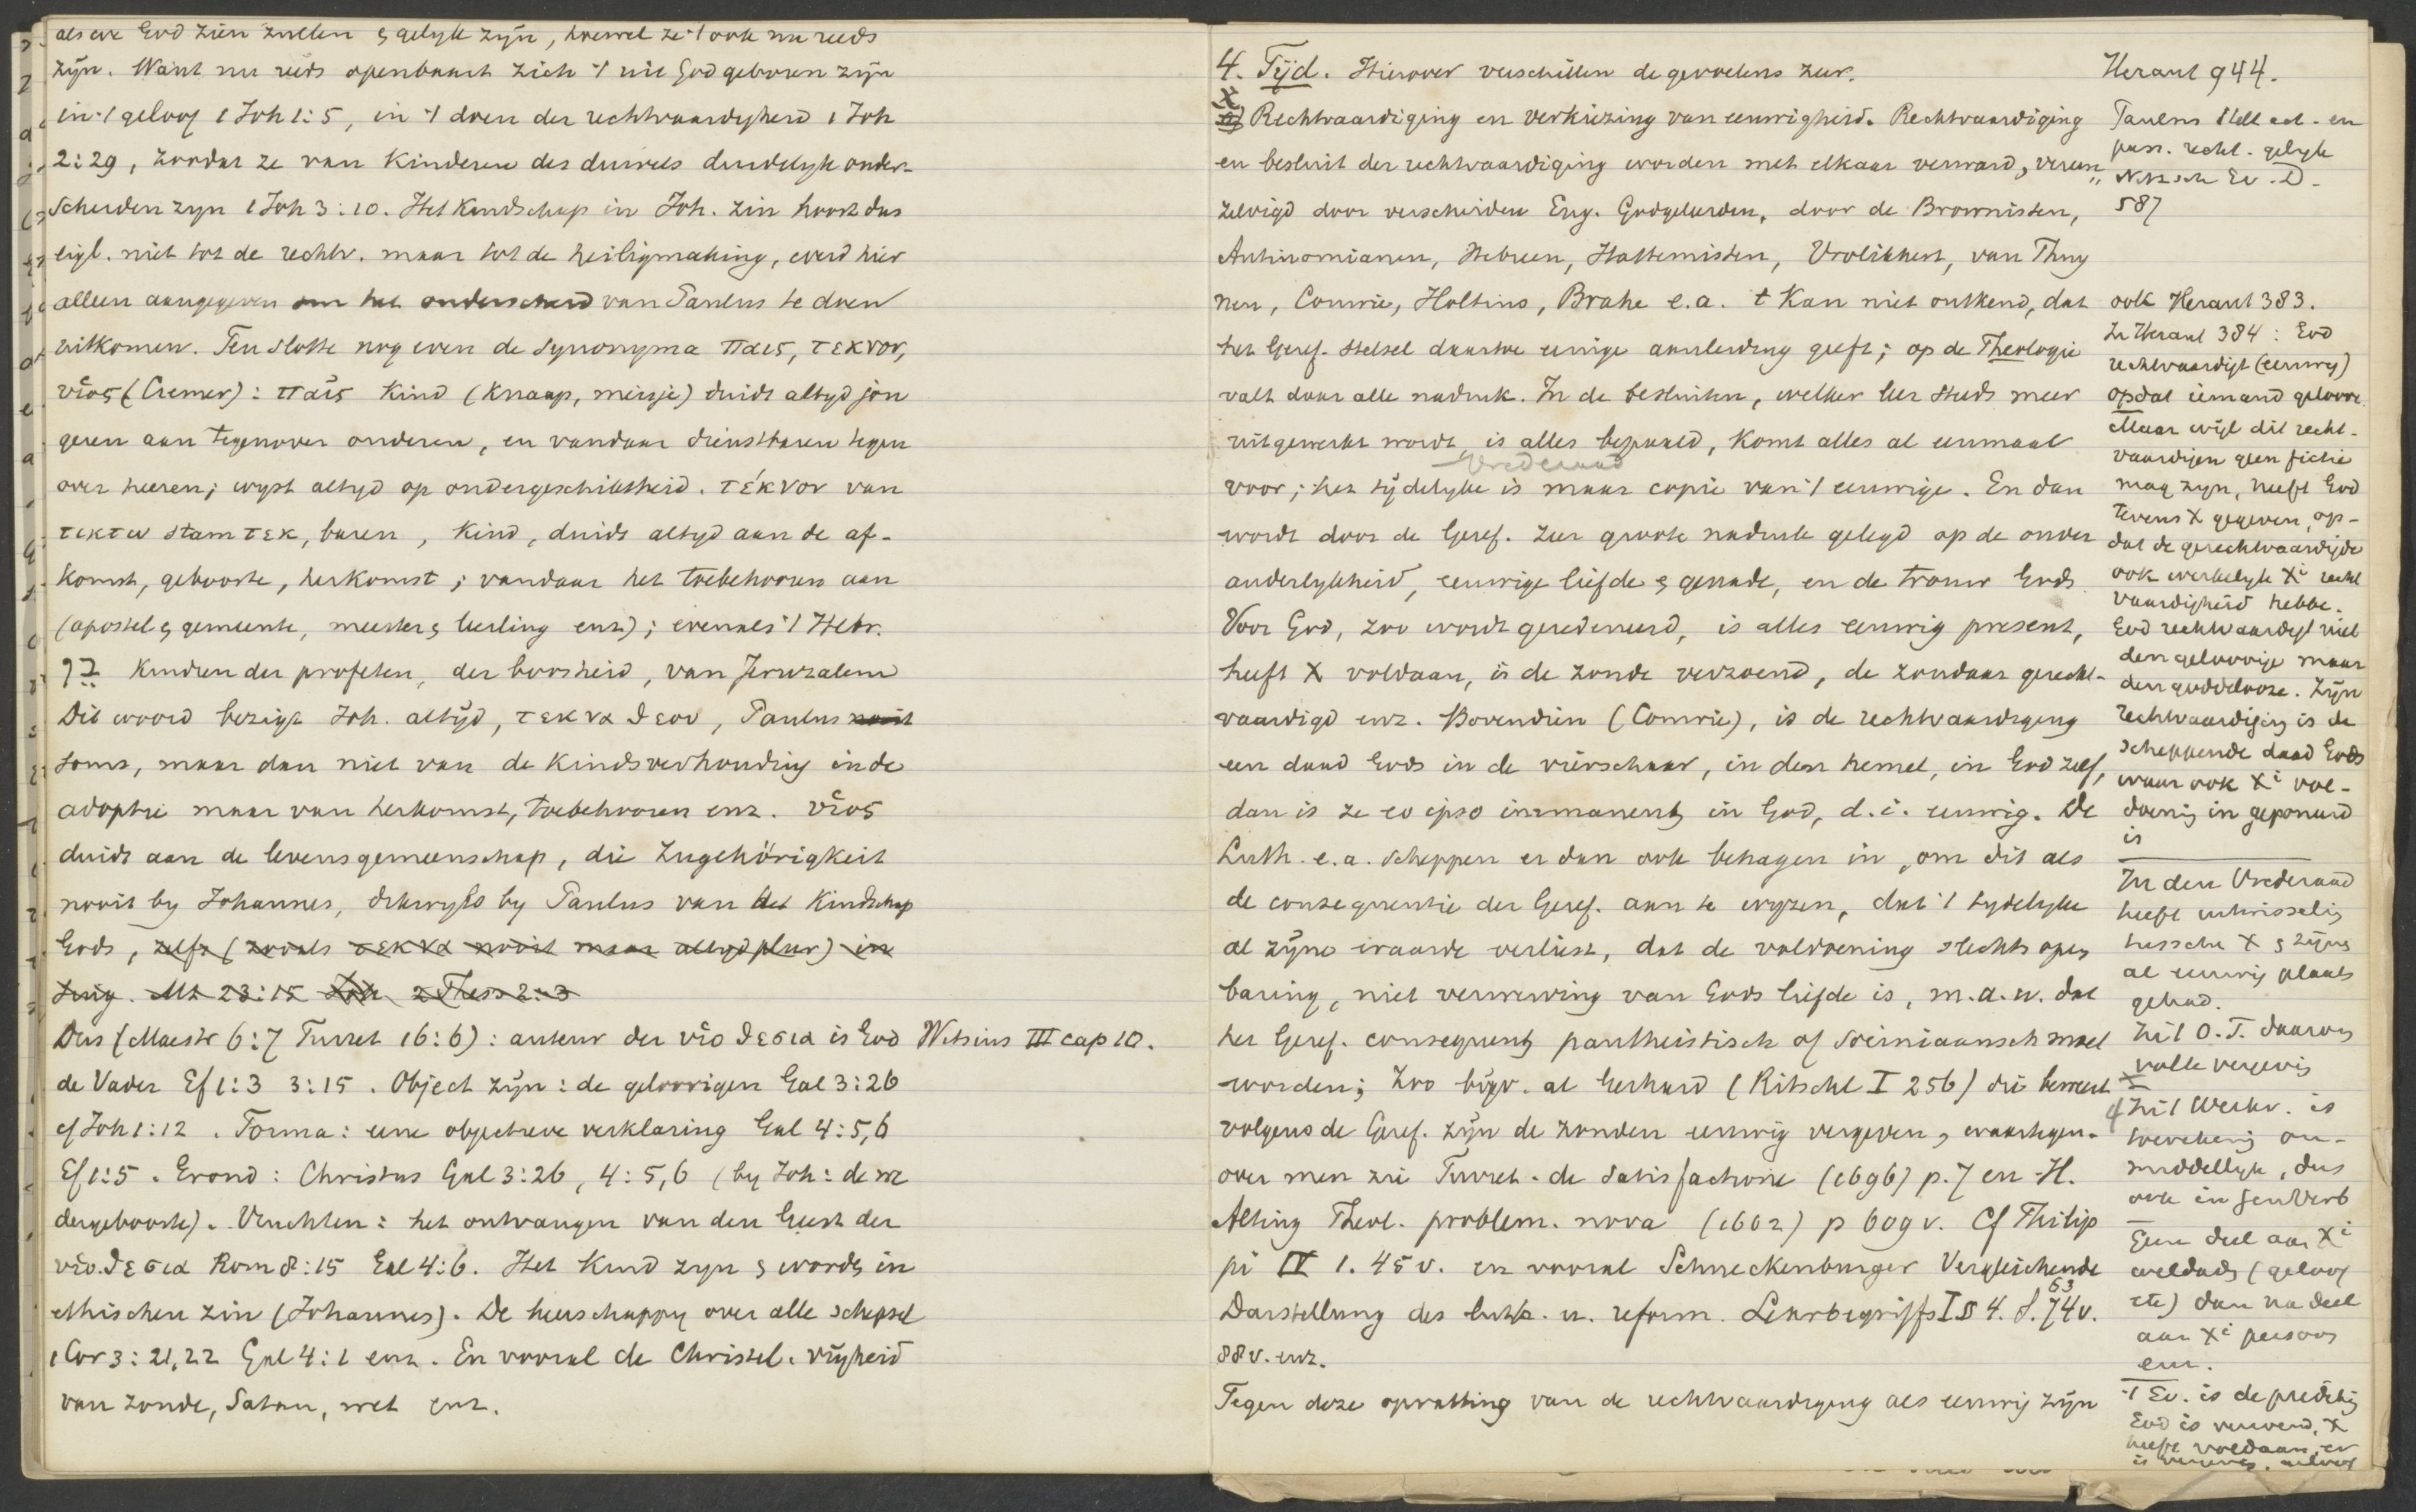 als we God zien zullen & gelijk zijn, hoewel ze 't ook nu reeds
zijn. Want nu reeds openbaart zich 't uit God geboren zijn
in 't geloof 1 Joh 1:5, in 't doen der rechtvaardigheid 1 Joh
2:29, zoodat ze van Kinderen des duivels duidelijk onder-
scheiden zijn 1 Joh 3:10. Het Kindschap in Joh. zin hoort dus
eigl. niet tot de rechtv. maar tot de heiligmaking, werd hier
alleen aangegeven om het onderscheid van Paulus te doen
uitkomen. Ten slotte nog even de Synonyma παις, τεκνον,
υἱος (Cremer): παῖς Kind (Knaap, meisje) duidt altijd jon
geren aan tegenover ouderen, en vandaar dienstbaren tegen
over heeren; wijst altyd op ondergeschiktheid. τέκνον van
τικτω stam τεκ, baren, Kind, duidt altyd aan de af-
komst, geboorte, herkomst; vandaar het toebehooren aan
(apostel & gemeente, meester & leerling enz); evenals 't Hebr.
בן Kindren der profeten, der boosheid, van Jeruzalem
Dit woord bezigt Joh. altijd, τεκνα θεου, Paulus nooit
soms, maar dan niet van de Kindsverhouding in de
adoptie maar van herkomst, toebehooren enz. υἱος
duidt aan de levensgemeenschap, die Zugehörigkeit
nooit by Johannes, dikwyls by Paulus van het Kindschap
Gods, zelfs (zooals τεκνα nooit maar altyd plur) in
sing. Mt 23:15 Joh 2 Thess 2:3
Dus (Maestr 6:7 Turret 16:6): auteur der υἱοθεσια is God Witsius III cap 10.
de Vader Ef 1:3 3:15. Object zijn: de geloovigen Gal 3:26
cf Joh 1:12. Forma: eene objectieve verklaring Gal 4:5,6
Ef 1:5. Grond: Christus Gal 3:26, 4:5,6 (by Joh: de we
dergeboorte). Vruchten: het ontvangen van den Geest der
υἱοθεσια Rom 8:15 Gal 4:6. Het Kind zyn & worden in
ethischen zin (Johannes). De heerschappy over alle schepsel
1 Cor 3:21,22 Gal 4:1 enz. En vooral de Christel. vrijheid
van zonde, Satan, wet enz.
4. Tijd. Hierover verschillen de gevoelens zeer.
Rechtvaardiging en verkiezing van eeuwigheid. Rechtvaardiging
en besluit der rechtvaardiging worden met elkaar verward, vereen
zelvigd door verscheiden Eng. Godgeleerden, door de Brownisten,
Antinomianen, Hebreen, Hattemisten, Vrolikhert, van Thuy
nen, Comrie, Holtius, Brahe e.a. 't Kan niet ontkend, dat
het Geref. stelsel daartoe eenige aanleiding geeft; op de Theologie
valt daar alle nadruk. In de besluiten, welker leer steeds meer
uitgewerkt wordt, is alles bepaald, Komt alles al eenmaal
Vrederaad
voor; het tijdelyke is maar copie van 't eeuwige. En dan
wordt door de Geref. zeer groote nadruk gelegd op de onver
anderlykheid, eeuwige liefde & genade, en de trouw Gods
Voor God, zoo wordt geredeneerd, is alles eeuwig present,
heeft X voldaan, is de zonde verzoend, de zondaar gerecht-
vaardigd enz. Bovendien (Comrie), is de rechtvaardiging
een daad Gods in de vierschaar, in den hemel, in God zelf,
dan is ze eo ipso immanent in God, d.i. eeuwig. De
Luth. e.a. scheppen er dan ook behagen in, om dit als
de consequentie der Geref. aan te wyzen, dat 't tydelyke
al zijne waarde verliest, dat de voldoening slechts open
baring, niet verwerving van Gods liefde is, m.a.w. dat
het Geref. consequent pantheistisch of Sociniaansch moet
worden; Zoo bijv. al Gerhard (Ritschl I 256) die beweert
volgens de Geref. zijn de zonden eeuwig vergeven, waartegen-
over men zie Turret. de Satisfactione (1696) p. 7 en H.
Alting Theol. problem. nova (1602) p 609 v. Cf Philip
pi IV 1. 45 v. en vooral Schneckenburger Vergleichende
Darstellung des luth. u. reform. Lehrbegriffs I § 4. S. 63 74 v.
88 v. enz.
Tegen deze opvatting van de rechtvaardiging als eeuwig zijn
Heraut 944.
Paulus stelt act. en
pass. recht. gelyk
Nitzsch Ev. D.
587
ook Heraut 383.
In Heraut 384: God
rechtvaardigt (eeuwig)
opdat iemand geloove
Maar wijl dit recht-
vaardigen geen fictie
mag zyn, heeft God
tevens X gegeven, op-
dat de gerechtvaardigde
ook werkelyk Xi recht
vaardigheid hebbe.
God rechtvaardigt niet
den geloovige maar
den goddelooze. Zijn
rechtvaardiging is de
scheppende daad Gods
waar ook Xi vol-
doening in geponeerd
is
In den Vrederaad
heeft
tusschen X & zijne
al eeuwig plaats
gehad.
In 't O.T. daarom
volle vergeving
In 't Werkv. is
toerekening on-
middellyk, dus
ook in Genverb
Eerst deel aan Xi
weldads (geloof
etc) dan na deel
aan Xi persoon
enz.
't Ev. is de prediking
God is verzoend, X
heeft voldaan, er
is